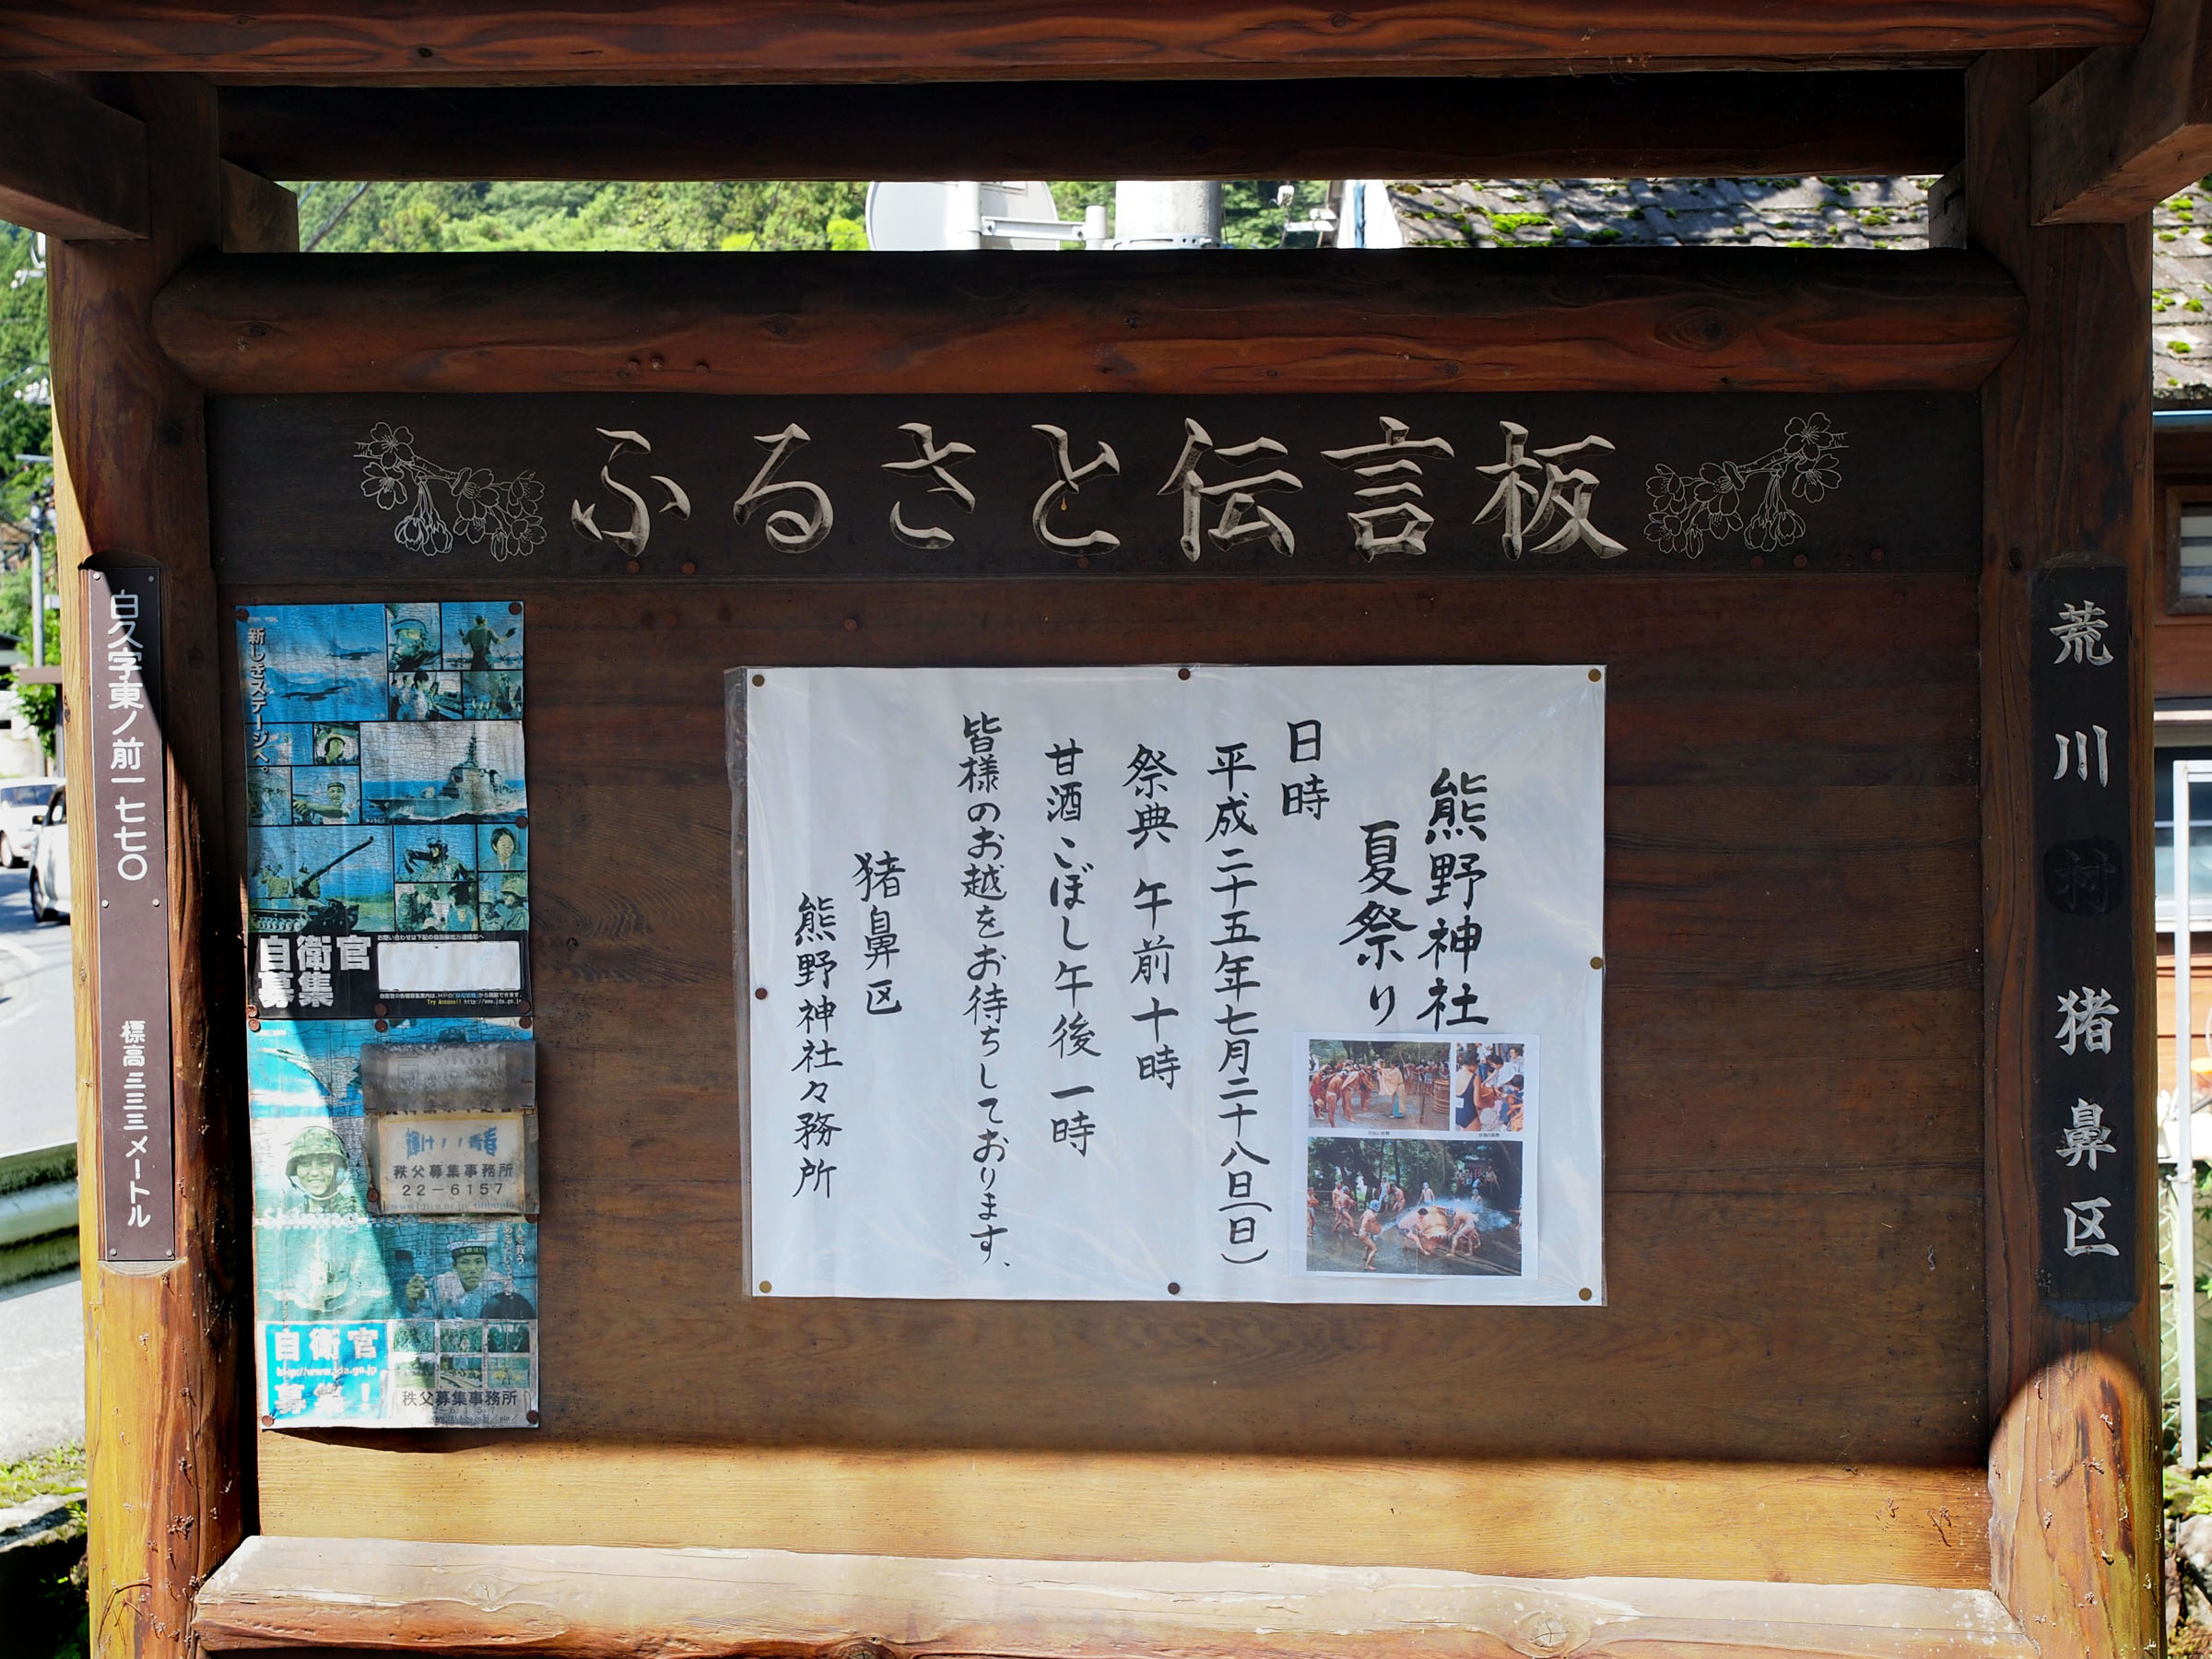 ふるさと伝言板
荒川村猪鼻区
熊野神社
夏祭り
日時
平成二十五年七月二十八日(日)
祭典 午前十時
甘酒こぼし午後一時
皆様のお越をお待ちしております、
猪鼻区
熊野神社々務所
白久字東ノ前一七七〇
標高三三三メートル
新しきステージへ。
自衛官
募集
輝け!!青春
秩父募集事務所
22-6157
自衛官
http://www.jda.go.jp
募集!
秩父募集事務所